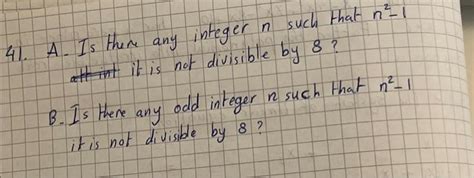 41. A - Is there any integer n such that n²-1
it is not divisible by 8 ?
B - Is there any odd integer n such that n²-1
it is not divisible by 8 ?